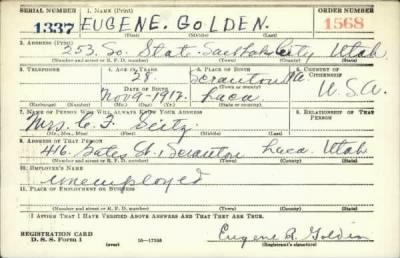 SERIAL NUMBER 1. NAME (Print) ORDER NUMBER
1337 EUGENE. GOLDEN. 1568
(First) (Middle) (Last)
2. ADDRESS (Print)
253. So. State. Salt Lake City Utah
(Number and street or R. F. D. number) (Town) (County) (State)
3. TELEPHONE 4. AGE IN YEARS 5. PLACE OF BIRTH 6. COUNTRY OF CITIZENSHIP
28. Scranton Pa U.S.A.
DATE OF BIRTH (Town or county)
Nov 9 1917. Luca
(Exchange) (Number) (Mo.) (Day) (Yr.) (State or country)
7. NAME OF PERSON WHO WILL ALWAYS KNOW YOUR ADDRESS 8. RELATIONSHIP OF THAT PERSON
Mrs. C. F. Seitz
(Mr., Mrs., Miss) (First) (Middle) (Last)
9. ADDRESS OF THAT PERSON
416. St. Scranton Luca. Utah
(Number and street or R. F. D. number) (Town) (County) (State)
10. EMPLOYER'S NAME
unemployed
11. PLACE OF EMPLOYMENT OR BUSINESS
(Number and street or R. F. D. number) (Town) (County) (State)
I AFFIRM THAT I HAVE VERIFIED ABOVE ANSWERS AND THAT THEY ARE TRUE.
REGISTRATION CARD
D. S. S. Form 1 (over) 16—17105 Eugene R. Golden
(Registrant's signature)